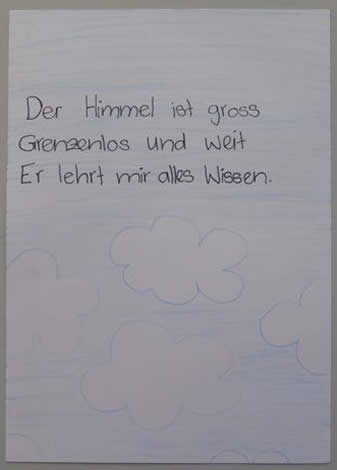 Der Himmel ist gross
Grenzenlos und weit
Er lehrt mir alles Wissen.